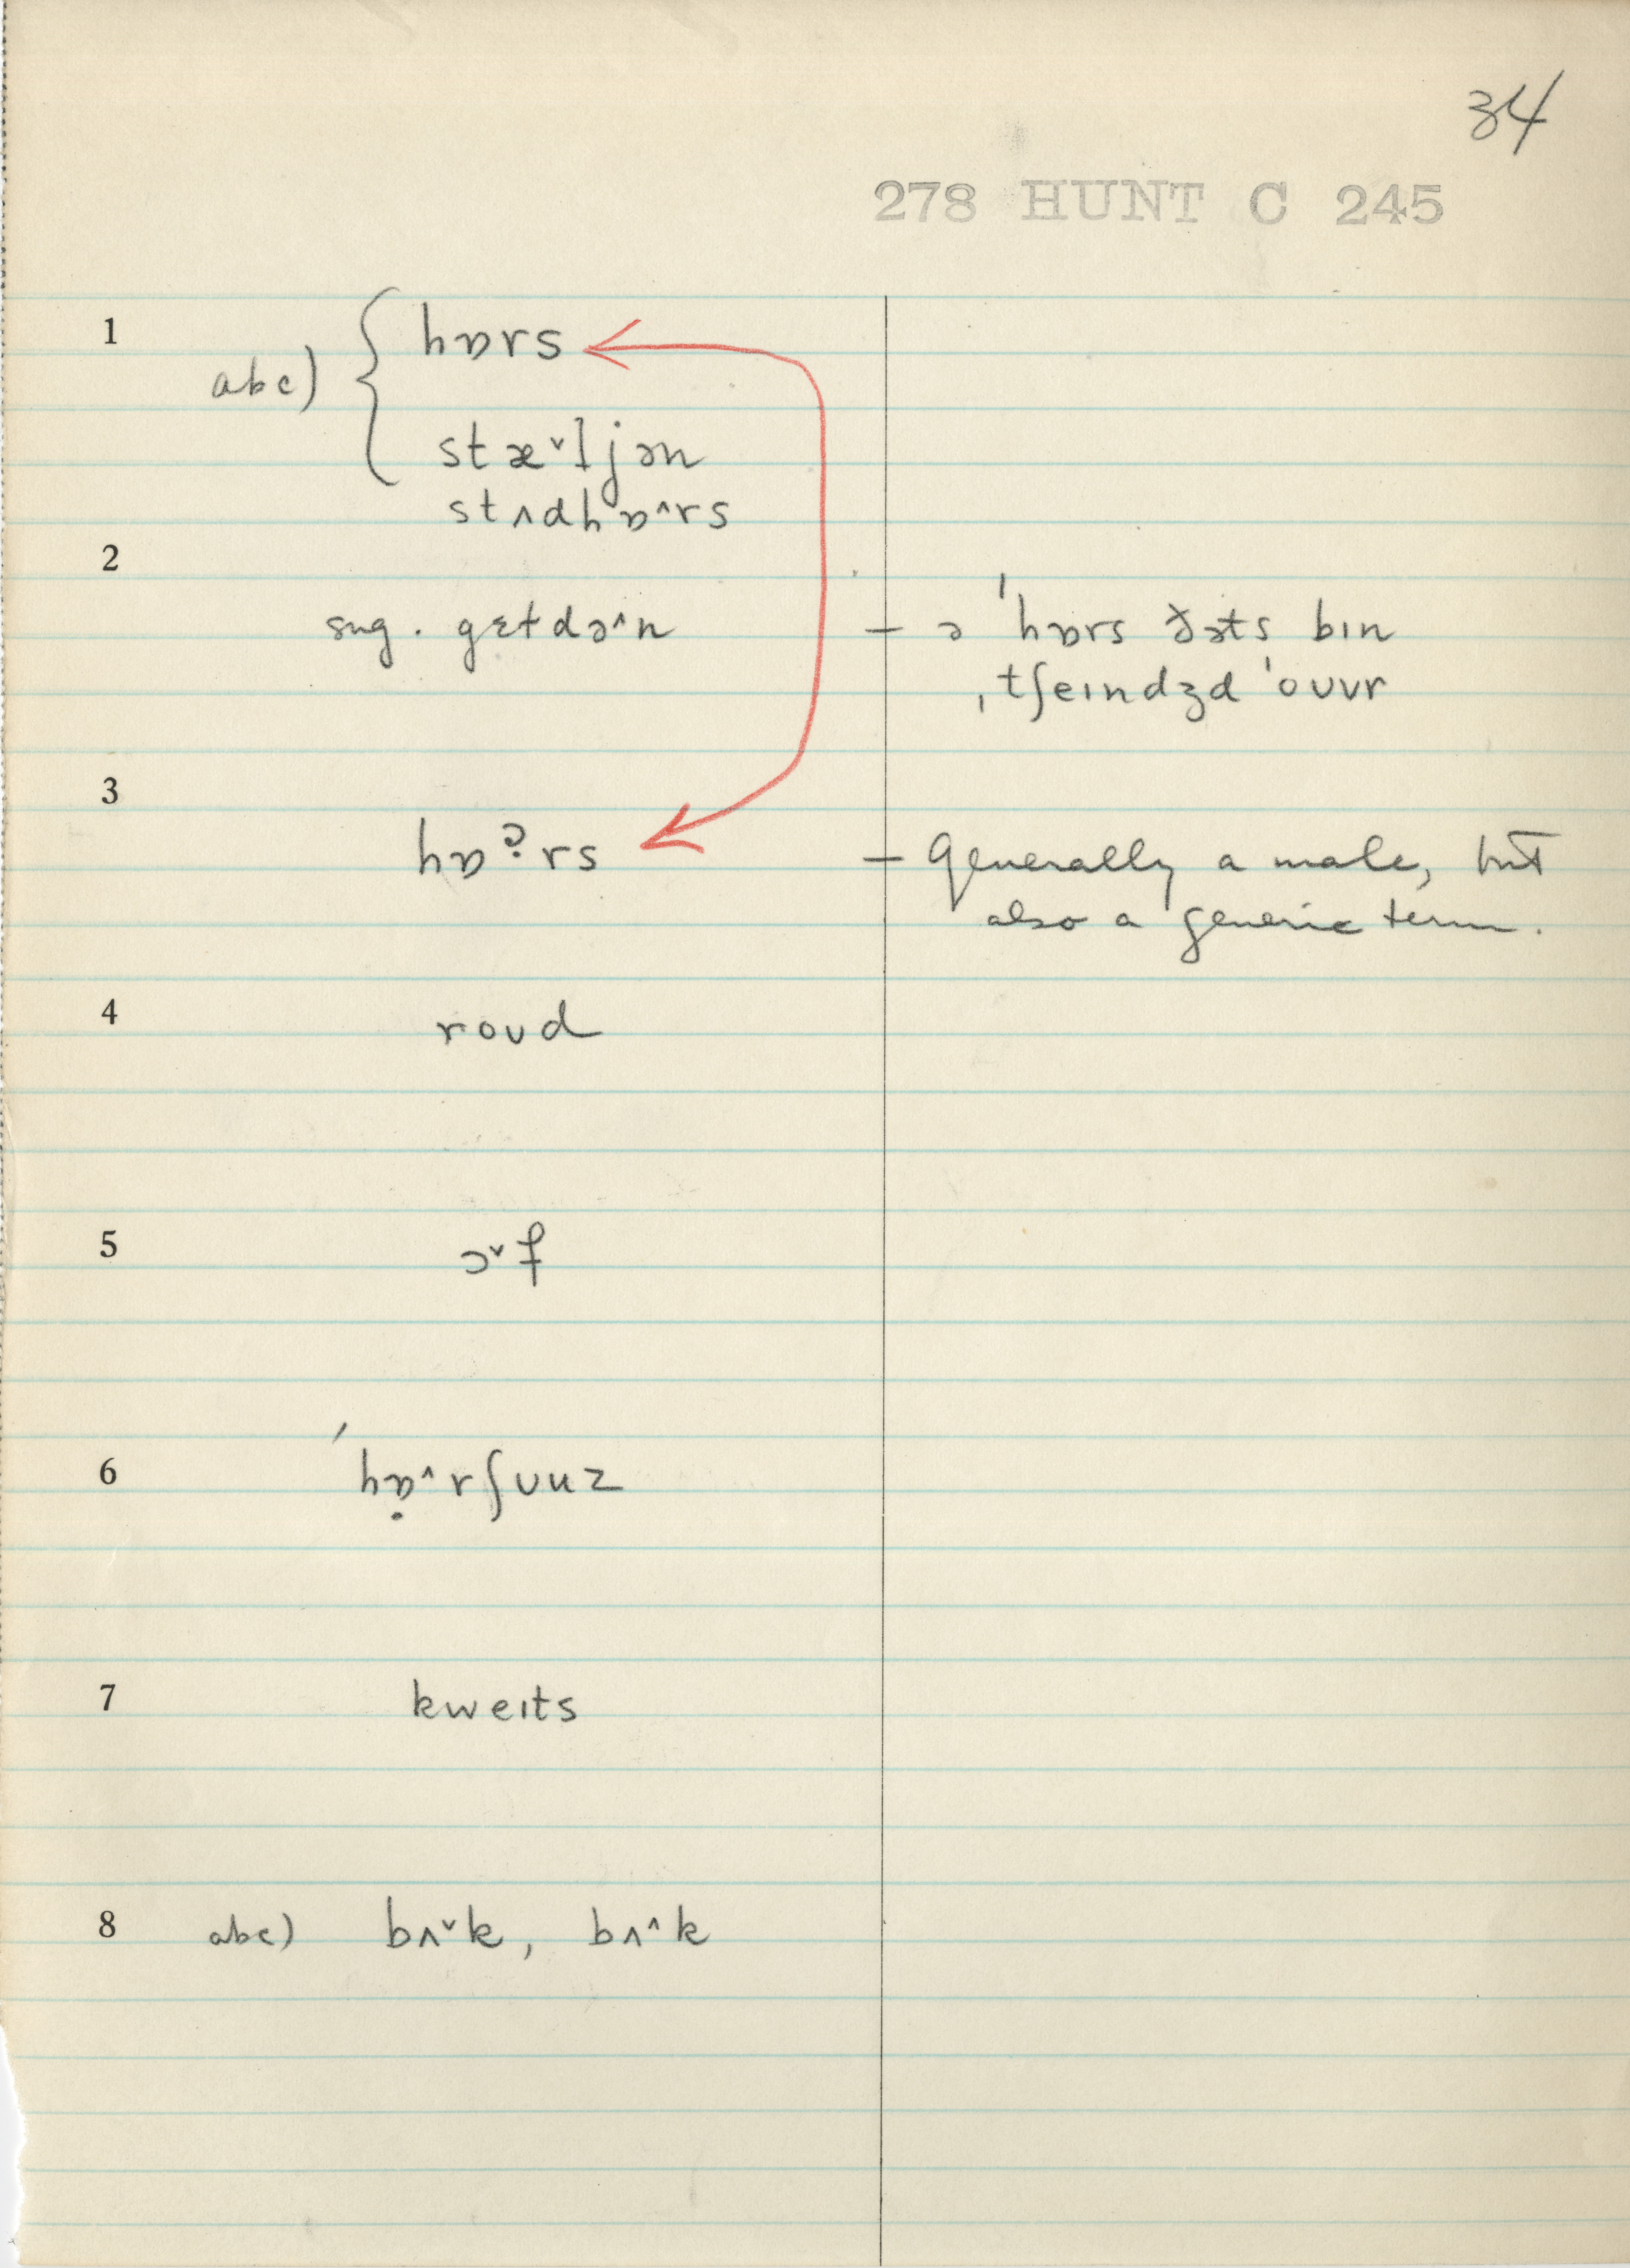 34
278 HUNT C 245
1
abc) { hɒrs
stæ˅ljən
stʌdhɒ˄rs
2
sug. gɛtdə˄n — ə 'hɒrs ðəts bɪn
ˌtʃeɪndʒd 'oʊvr
3
hɒˀ̣rs — Generally a male, but
also a generic term.
4
roʊd
5
ɔ˅f
6
'hɒ̣˄rʃuuz
7
kweɪts
8 abc) bʌ˅k, bʌ˄k